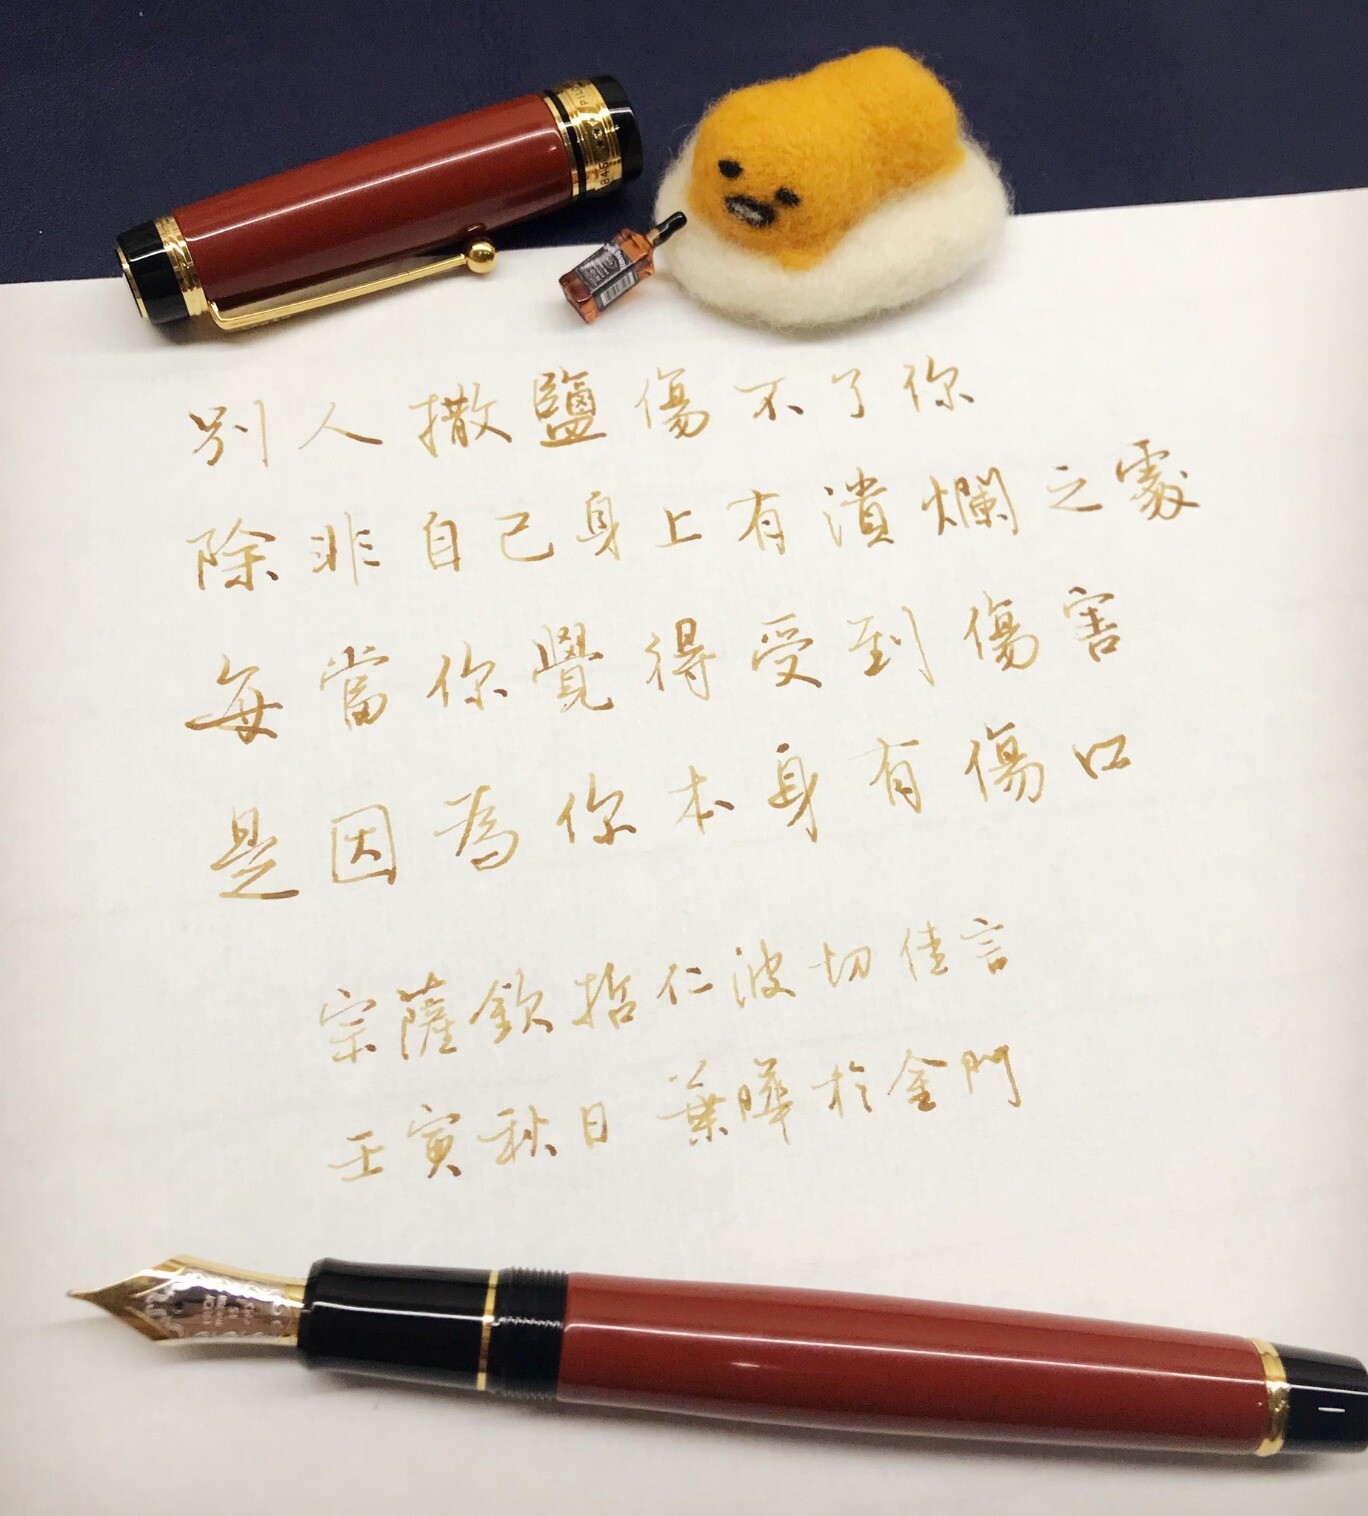 PILOT
別人撒鹽傷不了你
除非自己身上有潰爛之處
每當你覺得受到傷害
是因為你本身有傷口
宗薩欽哲仁波切佳言
壬寅秋日 葉曄於金門